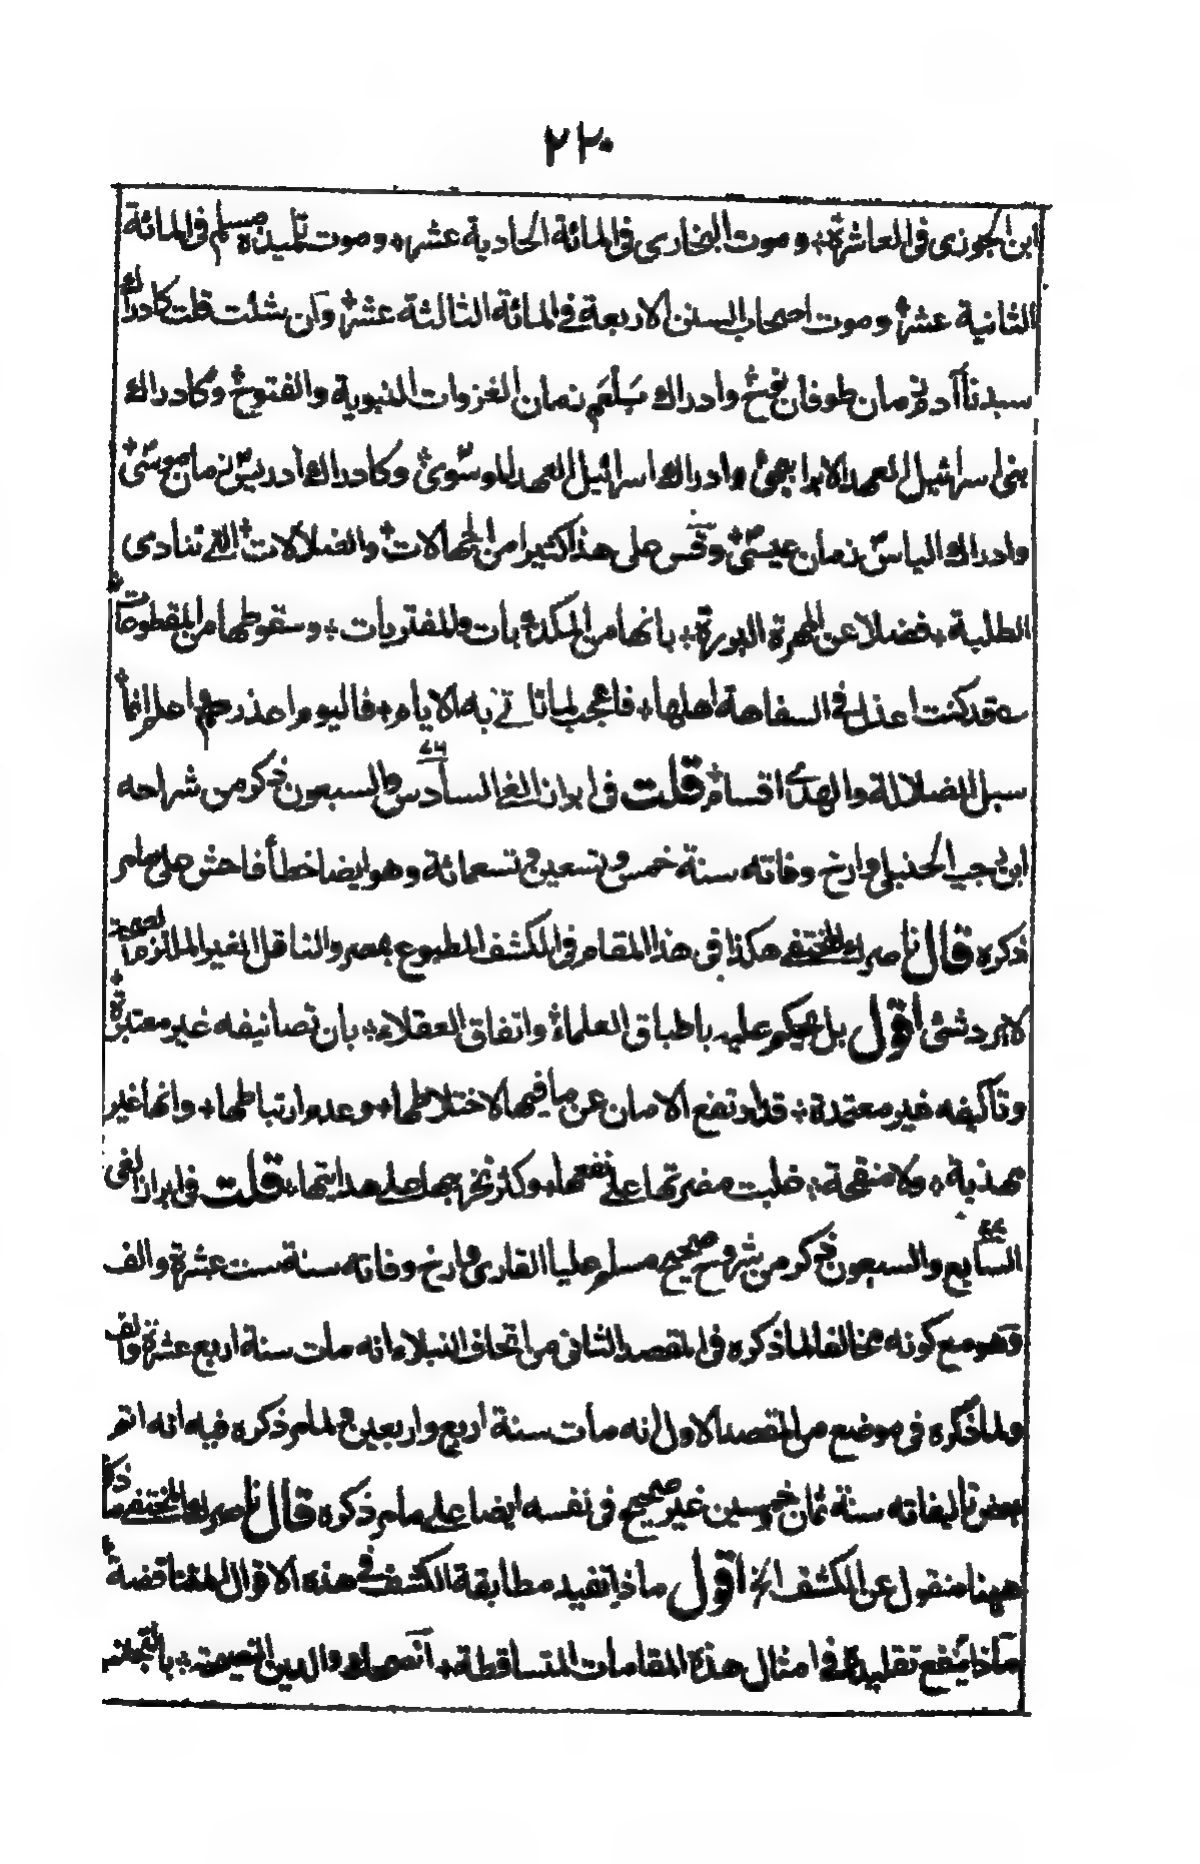 ٢٢٠
ابن الجوزى فى العاشرة + وموت البخارى فى المائة الحادية عشر + وموت تلميذه مسلم فى المائة
الثانية عشر + وموت اصحاب السنن الاربعة فى المائة الثالثة عشر + وان شئت قلت كادراك
سيدنا آدم زمان طوفان نوح + وادراك زمان الغزوات النبوية والفتوح + وكادراك
بنى اسرائيل العهد الابراهيمى + وادراك اسرائيل العهد الموسوى + وكادراك ادريس زمان موسى +
وادراك الياس زمان عيسى + وقس على هذا كثيرا من الجهالات + والضلالات + التى تنادى
الطلبة + فضلا عن المهرة البررة + بانها من المكذوبات والمفتريات + وسقوطها من المقطوعات +
قد كنت اعذل فى السفاهة اهلها + فاعجب لما تاتى به الايام + فاليوم اعذرهم واعلم انما +
سبل الضلالة والهدى اقسام + قلت فى ابراز الغى السادس والسبعون ٧٦ ذكر من شراحه
ابن رجب الحنبلى وارخ وفاته سنة خمس وتسعين وتسعمائة وهو ايضا خطأ فاحش على ما مر
ذكره قال ناصرك المختفى هكذا فى هذا المقام فى الكشف المطبوع بمصر والناقل الغير الملتزم لصحة
لا يرد شئ اقول بل يحكم عليه باطباق العلماء + واتفاق العقلاء + بان تصانيفه غير معتبرة +
وتآليفه غير معتمدة + قد ارتفع الامان عن ما فيها لاختلاطها + وعدم ارتباطها + وانها غير
مهذبة + ولا منقحة + غلبت مضرتها على نفعها + وكثر تخريبها على هدايتها + قلت فى ابراز الغى
السابع والسبعون ٧٧ ذكر من شروح صحيح مسلم عليا القارى وارخ وفاته سنة ست عشرة والف
وهو مع كونه مخالفا لما ذكره فى المقصد الثانى من اتحاف النبلاء انه مات سنة اربع عشرة والف
ولما ذكره فى موضع من المقصد الاول انه مات سنة اربع واربعين ولما مر ذكره فيه انه اتم
بعض تاليفاته سنة ثمان وخمسين غير صحيح فى نفسه ايضا على ما مر ذكره قال ناصرك المختفى ما ذكر
ههنا منقول عن الكشف الخ اقول ماذا تفيد مطابقة الكشف فى هذه الاقوال المتناقضة +
وماذا ينفع تقليده فى امثال هذه المقامات المتساقطة + والدين النصيحة +